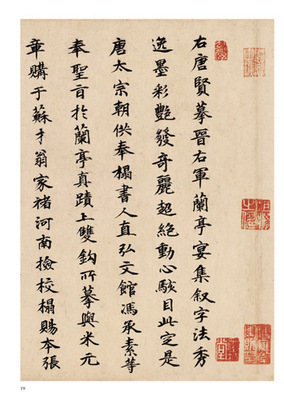 右唐賢摹晉右軍蘭亭宴集叙字法秀
逸墨彩艷發奇麗超絕動心駭目此定是
唐太宗朝供奉搨書人直弘文館馮承素等
奉聖旨於蘭亭真蹟上雙鈎所摹與米元
章購于蘇才翁家褚河南檢校搨賜本張